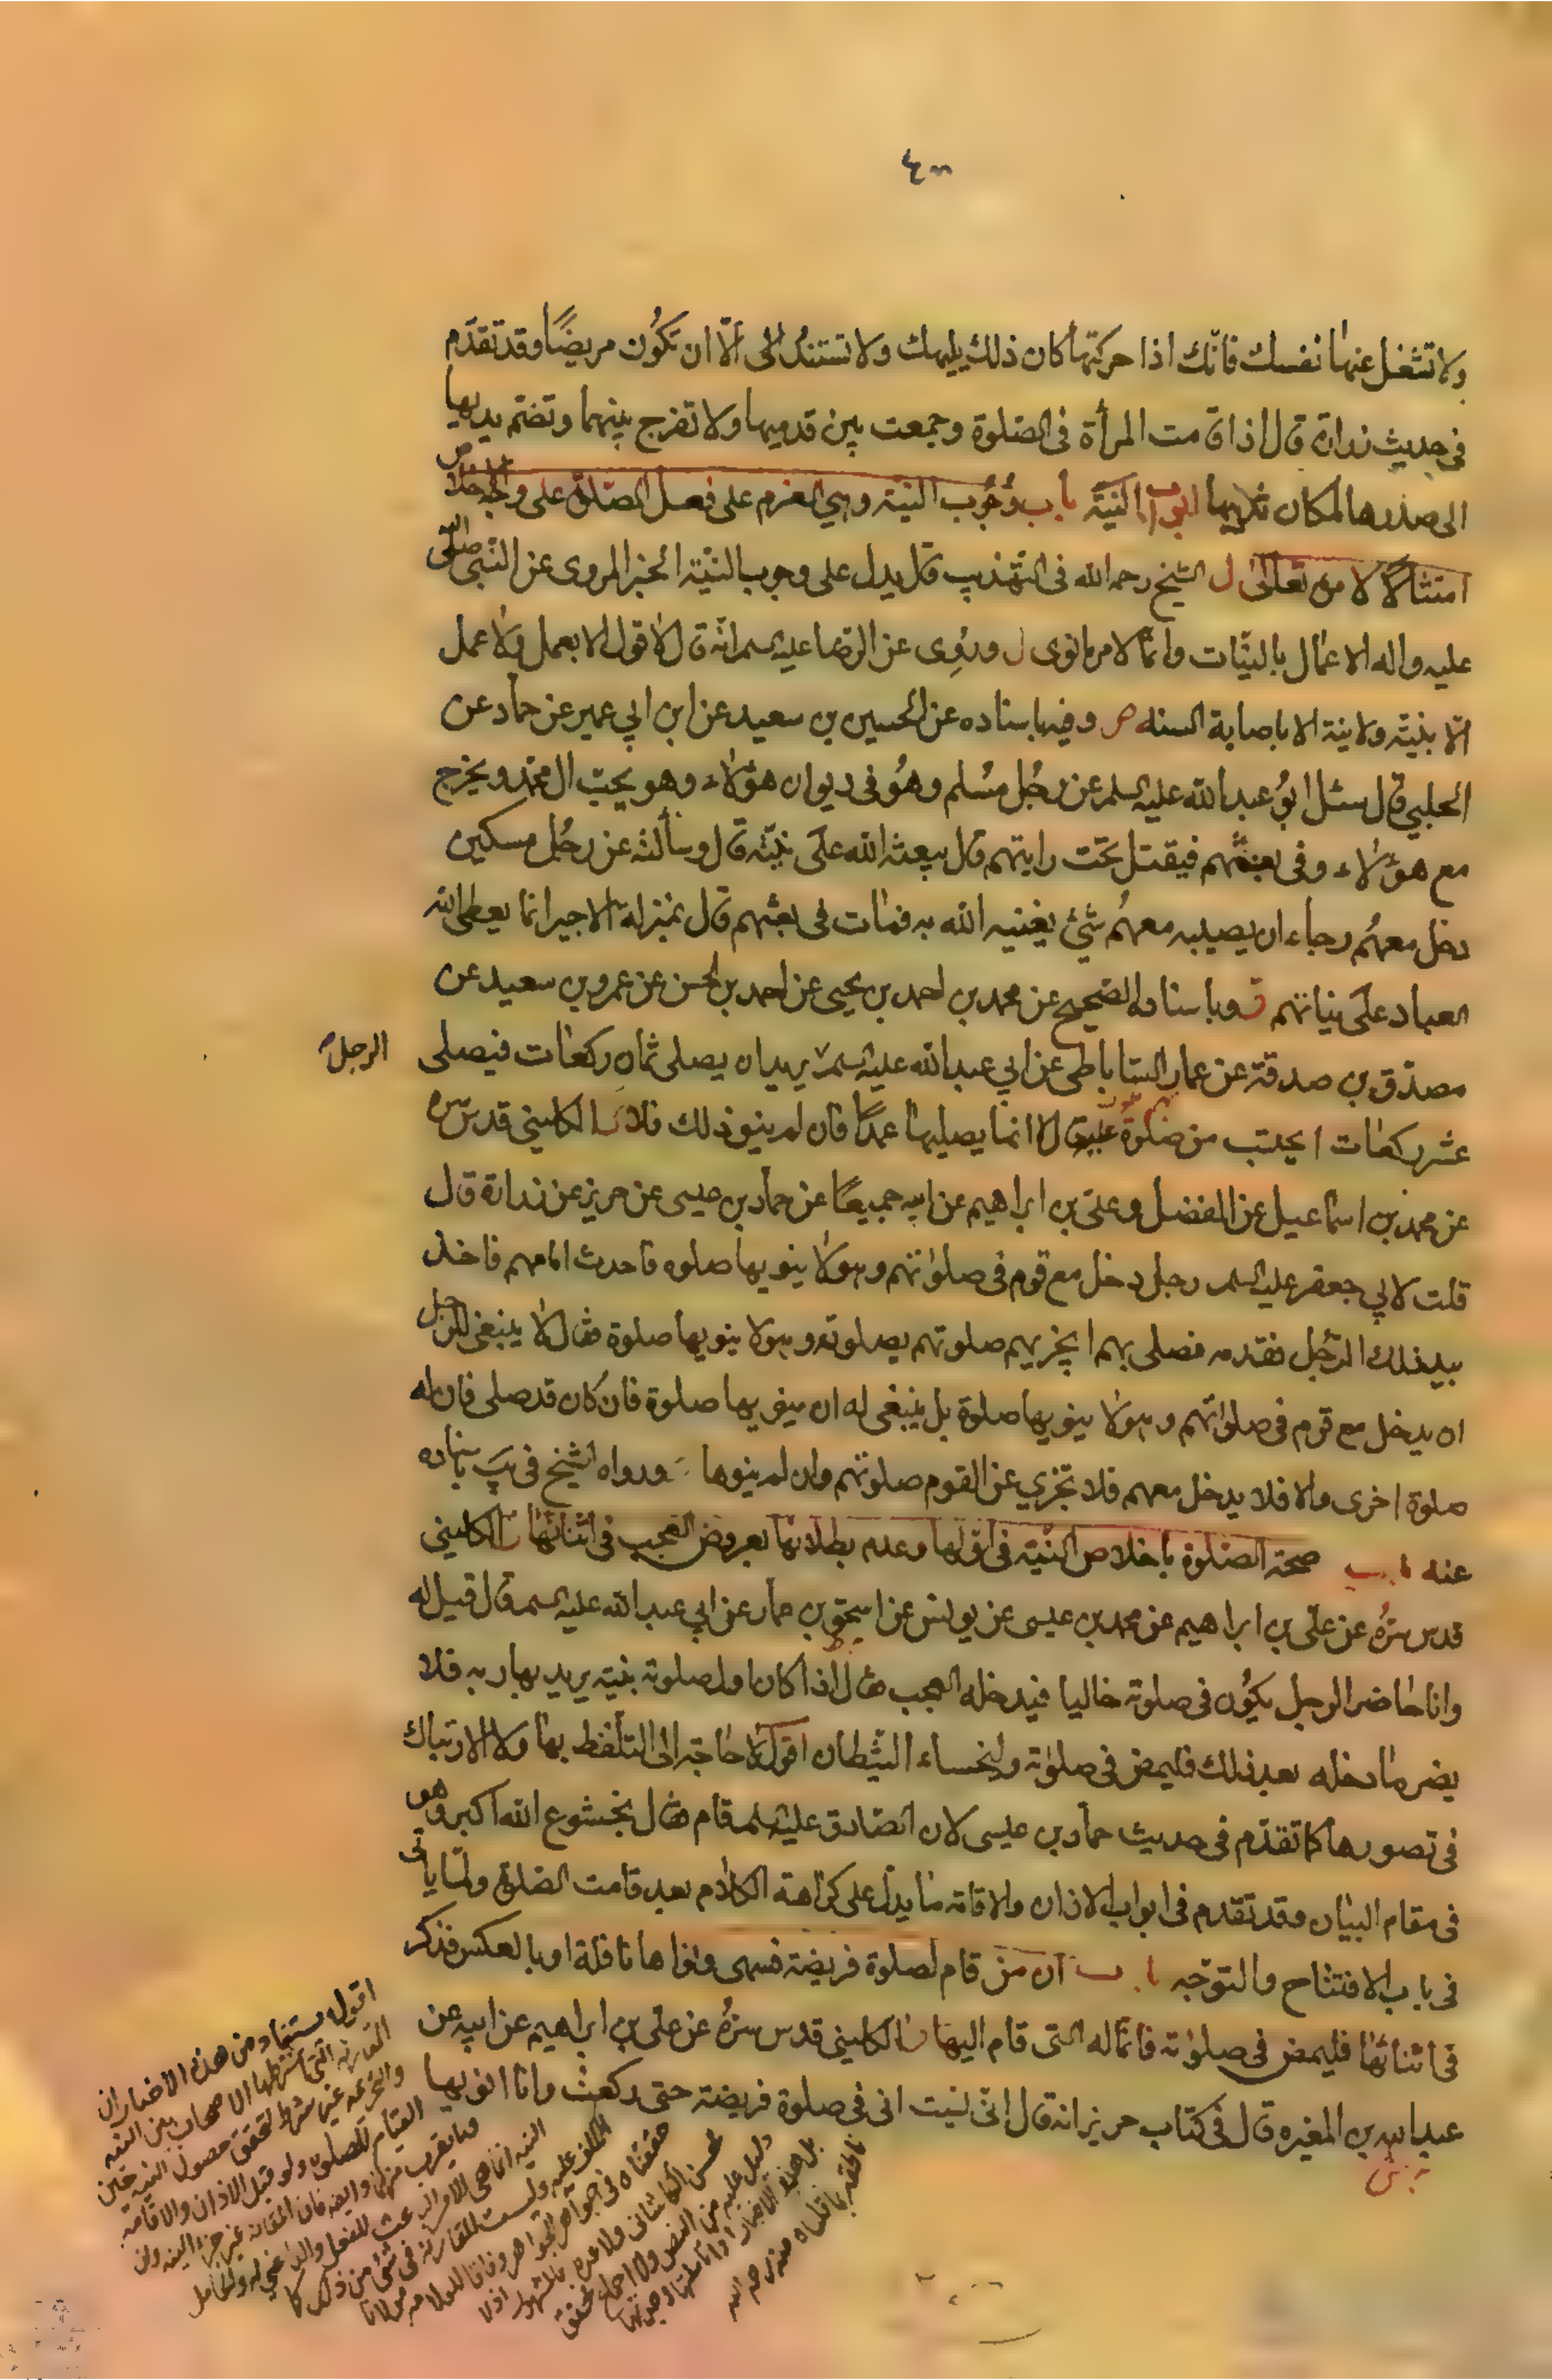 ولا تشغل عنها نفسك فانّك اذا حركتها كان ذلك يلهيك ولا تستند الى الّا ان تكُون مريضًا وقد تقدّم
فى حديث زرارة قال اذا قامت المرأة فى الصّلوة وجمعت بين قدميها ولا تفرج بينهما وتضمّ يديها
الى صدرها لمكان ثدييها ابواب النيّة باب وُجُوب النيّة وهي العزم على فعل الصّلوة على وجه
امتثالًا لامره تعالىٰ ل الشيخ رحمه الله فى التّهذيب قال يدل على وجوب النيّة الخبر المروى عن النّبى صلّى الله
عليه واله الاعمال بالنيّات وانّما لامرء ما نوى ل ورُوِى عن الرضا عليه السلم انّه قال لا قول الا بعمل ولا عمل
الّا بنيّة ولا نية الا باصابة السنه وفيها باسناده عن الحسين بن سعيد عن ابن ابي عمير عن حمّاد عن
الحلبي قال سئل ابُو عبد الله عليه السلم عن رجُل مسُلم وهُو فى ديوان هؤلاء وهو يحبّ ال محمّد ويخرج
مع هؤلاء وفى بعثهم فيقتل تحت رايتهم قال يبعثه الله على نيّته قال وسألته عن رجُل مسكين
دخل معهُم رجاء ان يصيب معهُم شئ يغنيه الله به فمات فى بعثهم قال بمنزله الاجير انما يعطى الله
العباد على نياتهم وباسناده الصّحيح عن محمد بن احمد بن يحيى عن احمد بن الحسن عن عمرو بن سعيد عن
مصدّق بن صدقة عن عمار السّاباطى عن ابي عبد الله عليه السلم يريد ان يصلى ثمان ركعات فيصلى
الرجل
عشر ركعات ايحتسب من صلوة عليه قال لا انما يصليها عمدًا فان لم ينو ذلك فلا الكلينى قدس سره
عن محمد بن اسماعيل عن الفضل وعلى بن ابراهيم عن ابيه جميعًا عن حمّاد بن عيسى عن حريز عن زرارة قال
قلت لابي جعفر عليه السلم رجل دخل مع قوم فى صلوٰتهم وهو لا ينويها صلوه فاحدث امامهم فاخذ
بيد ذلك الرّجُل فقدمه فصلى بهم ايجزيهم صلوتهم بصلوته وهو لا ينويها صلوة فقال لا ينبغى للرجل
ان يدخل مع قوم فى صلواتهم وهو لا ينويها صلوة بل ينبغى له ان ينويها صلوة فان كان قد صلى فان له
صلوة اخرى والا فلا يدخل معهم فلا تجزى عن القوم صلوتهم وان لم ينوها ورواه الشيخ فى يب باسناده
عنه باب صحة الصّلوة باخلاص النّيّة فى اوّلها وعدم بطلانها بعروض العجب فى اثنائها الكلينى
قدس سرّهُ عن علّى بن ابراهيم عن محمد بن عيسى عن يونس عن اسحق بن عمار عن ابي عبد الله عليه السلم قال قيل له
وانا حاضر الرجل يكوُن فى صلوته خاليا فيدخله العجب فقال اذا كان اول صلوته بنيّة يريد بها ربه فلا
يضر ما دخله بعد ذلك فليمض فى صلوٰته وليخساء الشّيطان اقول لا حاجة الى التلّفظ بها ولا الارتباك
فى تصورها كما تقدّم فى حديث حمّاد بن عيسى لان الصّادق عليه السلم قام فقال بخشوع الله اكبر وهو
فى مقام البيان وقد تقدم فى ابواب الاذان والاقامة ما يدلّ على كراهة الكلام بعد قامت الصّلوة ولما يأتى
فى باب الافتتاح والتوجّه باب ان من قام لصلوة فريضة فسهى ونواها نافلة او بالعكس فذكر
فى اثنائها فليمض فى صلوٰته فانّما له التى قام اليها الكلينى قدس سرّهُ عن على بن ابراهيم عن ابيه عن
عبد الله بن المغيره قال فى كتاب حريز انه قال انّى نسيت انى فى صلوة فريضة حتى ركعت وانا انويها
اقول يستفاد من هذه الاخبار ان
المقارنه التى اشترطها الاصحاب بين النيه
والتحريمه غير شرط لتحقق حصول النيه حين
القيام للصلوة ولو قبل الاذان والاقامه